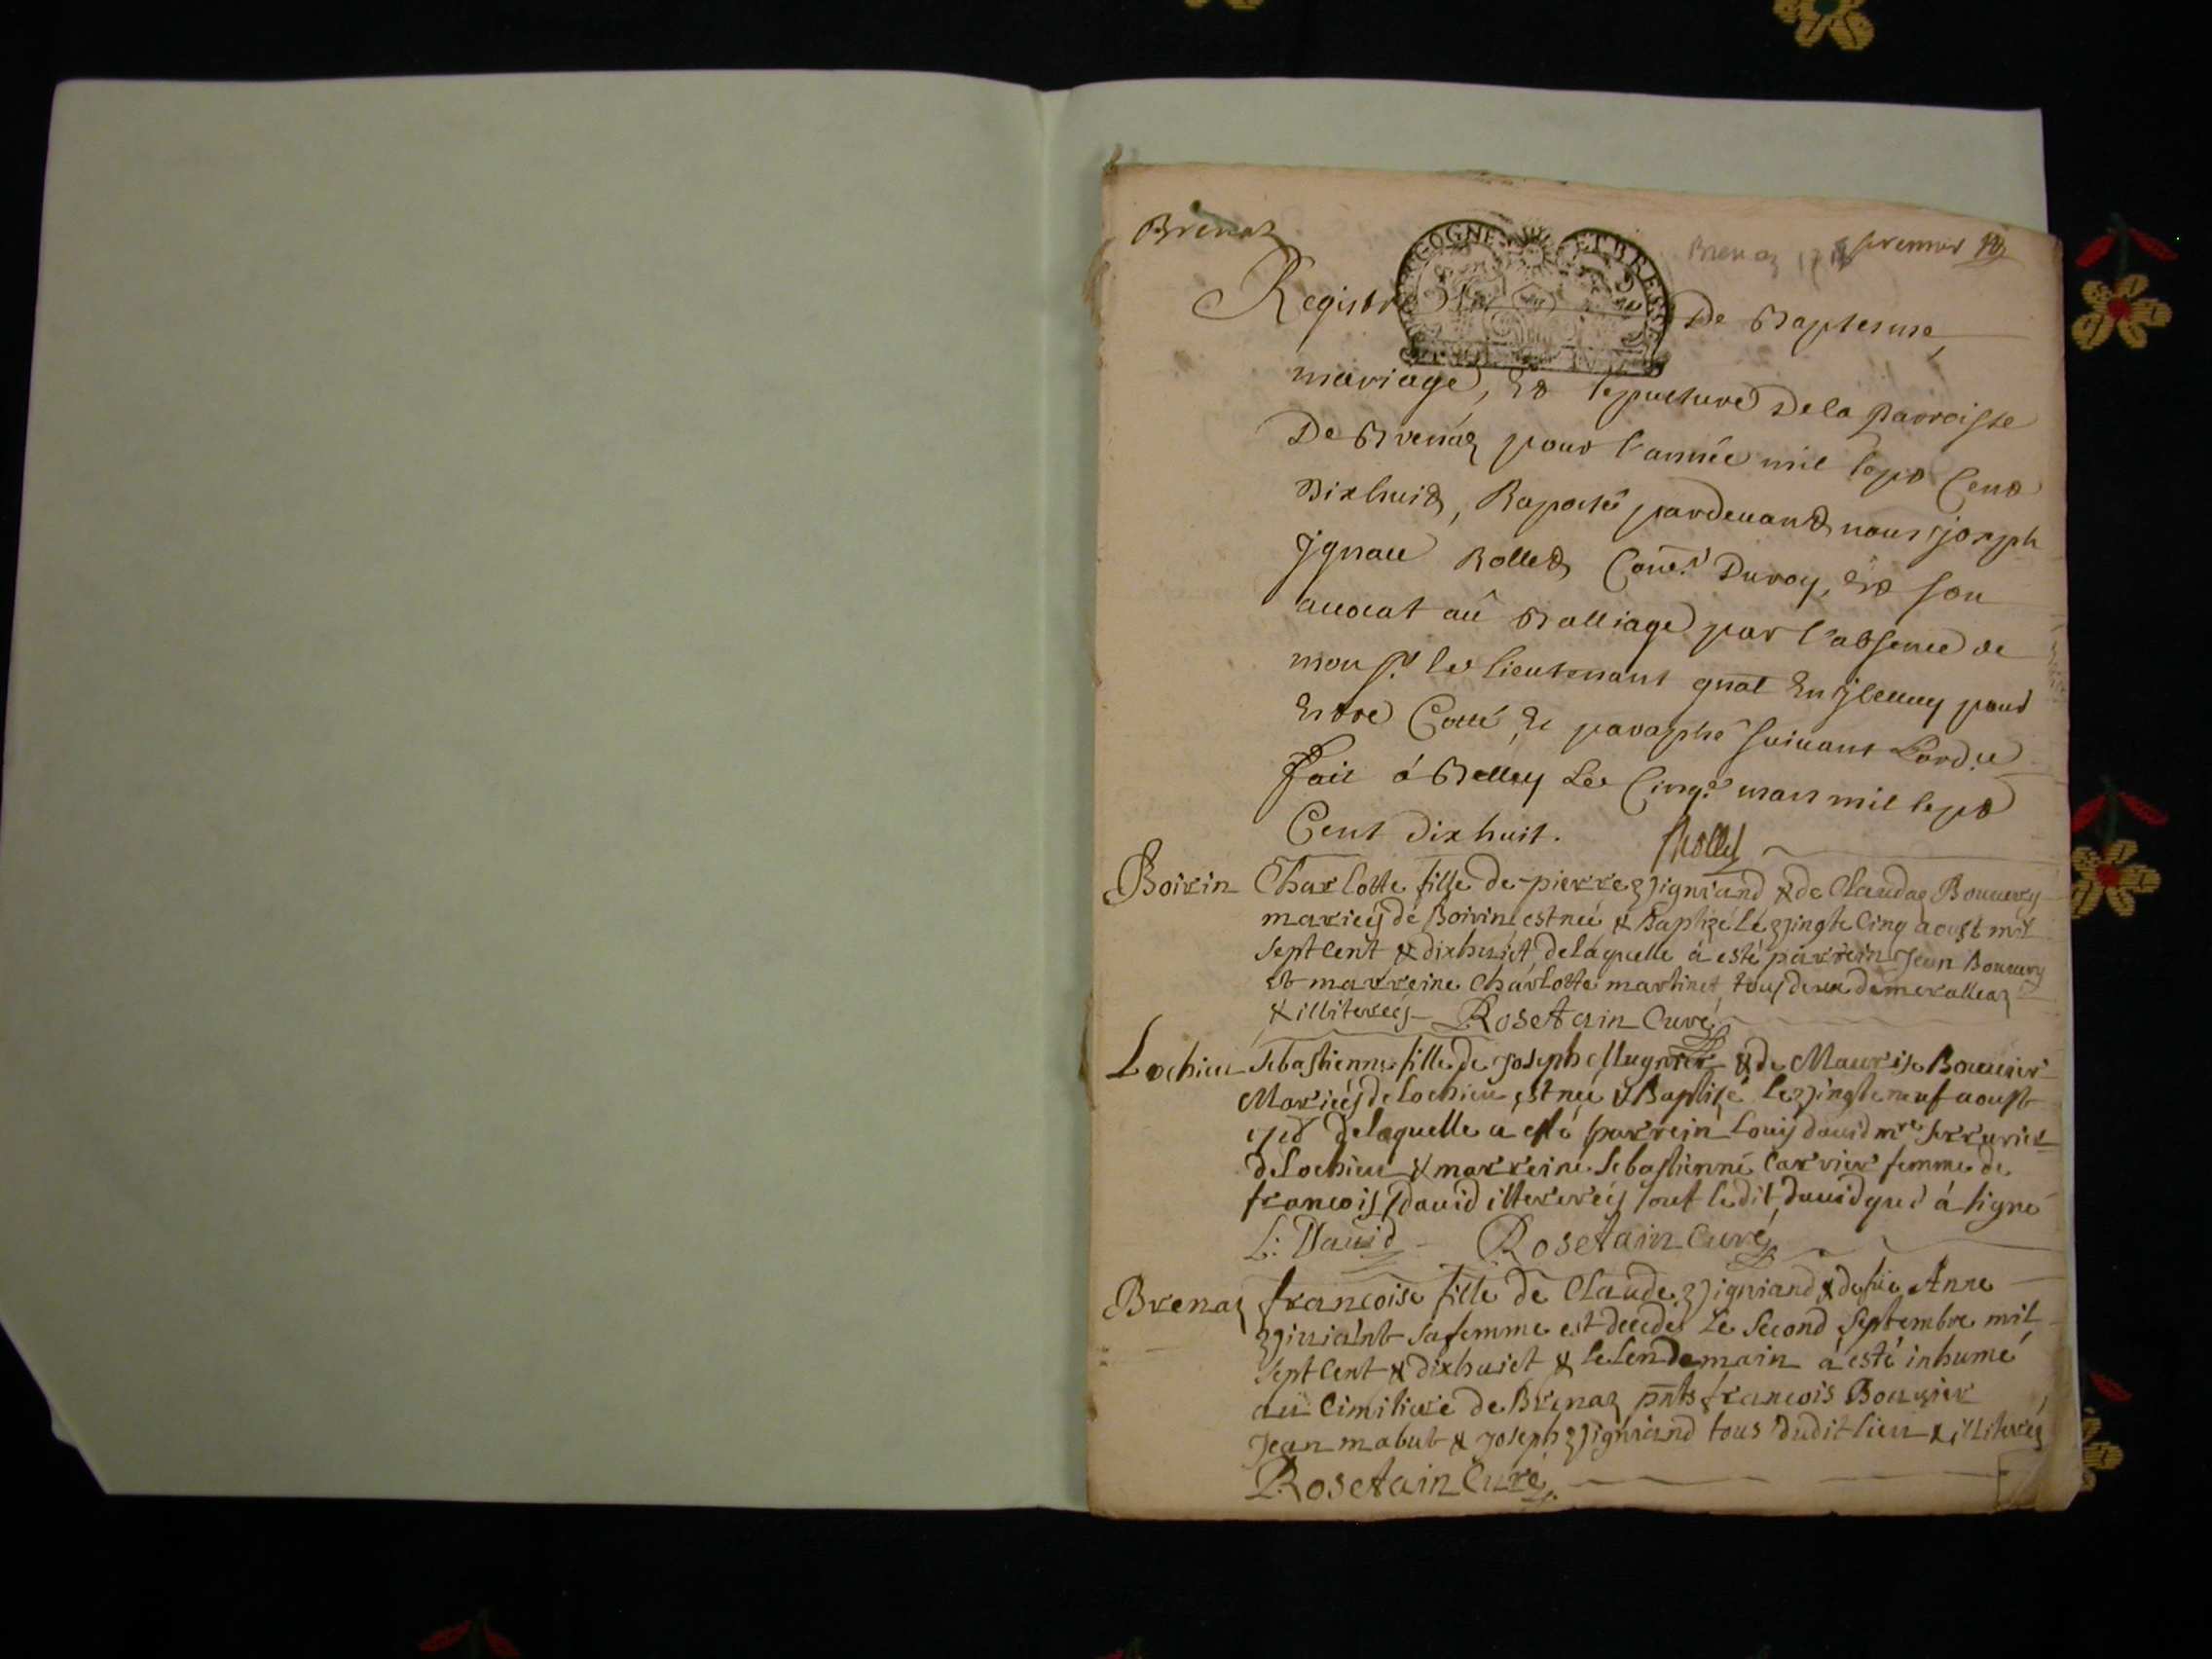 Brenaz
Brenaz 1718 premier
BOURGOGNE ET BRESSE
Registre De Baptesme,
mariage, Et sepulture De la parroisse
De Brenaz pour l'année mil sept Cent
Dixhuit, Raporté pardeuant nous joseph
Ignace Rollet Conser Du roy, Et son
auocat au Balliage par l'absence de
monsr le lieutenant gnal En jceluy pour
Estre Cotté, Et paraphé suiuant Lordce
fait à Belley Le Cinqe mars mil sept
Cent Dixhuit. Rollet
Boirin Charlotte fille de pierre Vigniand & de Claudaz Bouuery
mariéş de Boirin est neé & Baptizé le vingte Cinq aoust mil
sept Cent & dixhuict, delaquelle à esté parrein Jean Bouuery
et marreine Charlotte martinet, tous deux de meralleaz
& illitereéş Rosetain Curé
Lochieu Sebastienne fille de Joseph Mugnier & de Maurise Bouuier
Mariéş de Lochieu est neé & Baptisé le vingte neuf aoust
delaquelle a esté parrein Louis dauid mre serrurier
de Lochieu & marreine Sebastienne Carrier femme de
francois dauid illetereéş sauf ledit dauid qui à signé
L: Dauid Rosetain Curé
Brenaz francoise fille de Claude Vigniand & de füe Anne
sa femme est decedeé Le Second Septembre mil
sept Cent & dixhuict & le lendemain à esté inhumé
au Cimitiere de Brenaz pnts francois Bouuier
Jean mabut & Joseph Vigniand tous dudit lieu & illitereş
Rosetain Curé